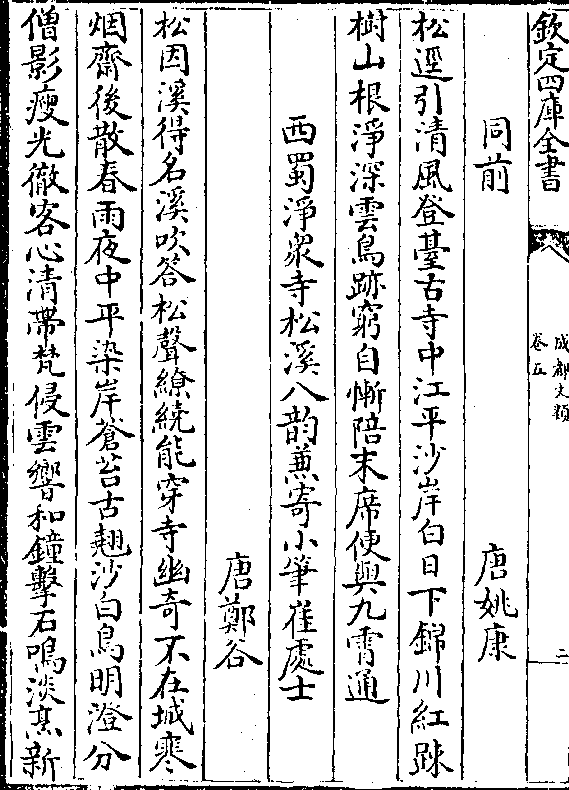 欽定四庫全書
成都文類
卷五
二
同前
唐姚康
松逕引清風登臺古寺中江平沙岸白日下錦川紅踈
樹山根淨深雲鳥跡窮自慚陪末席便與九霄通
西蜀淨衆寺松溪八韵兼寄小筆崔處士
唐鄭谷
松因溪得名溪吹答松聲繚繞能穿寺幽奇不在城寒
烟齋後散春雨夜中平染岸蒼苔古翹沙白鳥明澄分
僧影瘦光徹客心清帶梵侵雲響和鐘擊石鳴淡烹新